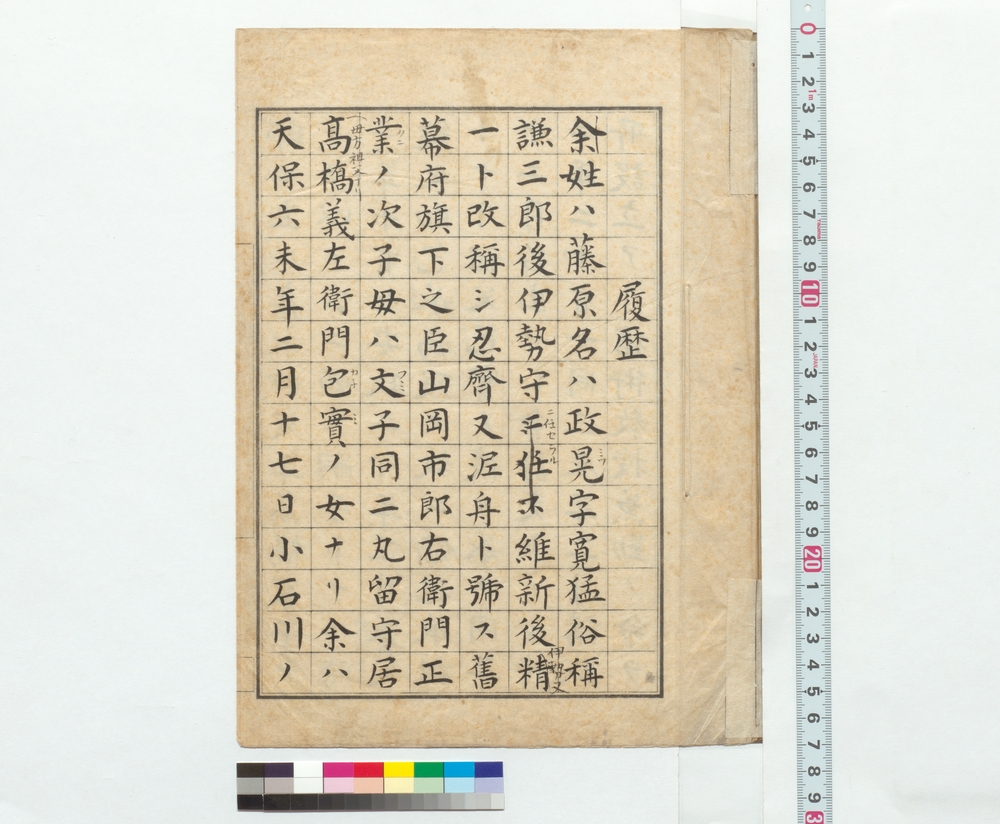 履歴
余姓ハ藤原名ハ政晃字寛猛俗稱
謙三郎後伊勢守ニ任セラル維新後精
一ト改稱シ忍齊又泥舟ト號ス舊
幕府旗下之臣山岡市郎右衛門正
業ノ次子母ハ文子同二丸留守居
髙橋義左衛門包實ノ女ナリ余ハ
天保六未年二月十七日小石川ノ